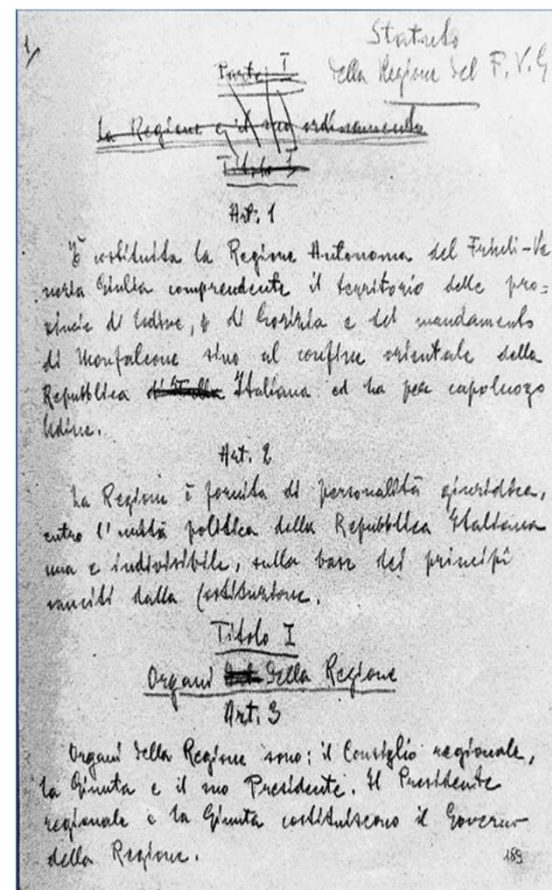 1)
Statuto
della Regione del F. V. G
Parte I
La Regione e il suo ordinamento
Titolo I
Art. 1
È costituita la Regione Autonoma del Friuli-Ve
nezia Giulia comprendente il territorio delle pro=
vincie di Udine, di Gorizia e del mandamento
di Monfalcone sino al confine orientale della
Repubblica d'Italia Italiana ed ha per capoluogo
Udine.
Art. 2
La Regione è fornita di personalità giuridica,
entro l'unità politica della Repubblica Italiana
una e indivisibile, sulla base dei principî
sanciti dalla Costituzione.
Titolo I
Organi della Regione
Art. 3
Organi della Regione sono: il Consiglio regionale,
la Giunta e il suo Presidente. Il Presidente
regionale e la Giunta costituiscono il Governo
della Regione.
189